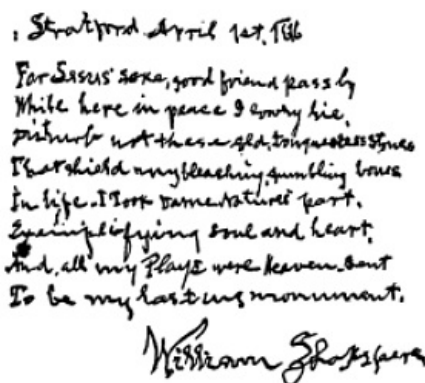 Stratford April 1st, 1616
For Jesus' sake, good friend pass by
While here in peace I lowly lie,
Disturb not these old, tongueless stones
That shield my bleaching, crumbling bones
In life, I took Dame Nature's part,
Exemplifying soul and heart,
And, all my Plays were Heaven-sent
To be my lasting monument.
William Shakspere